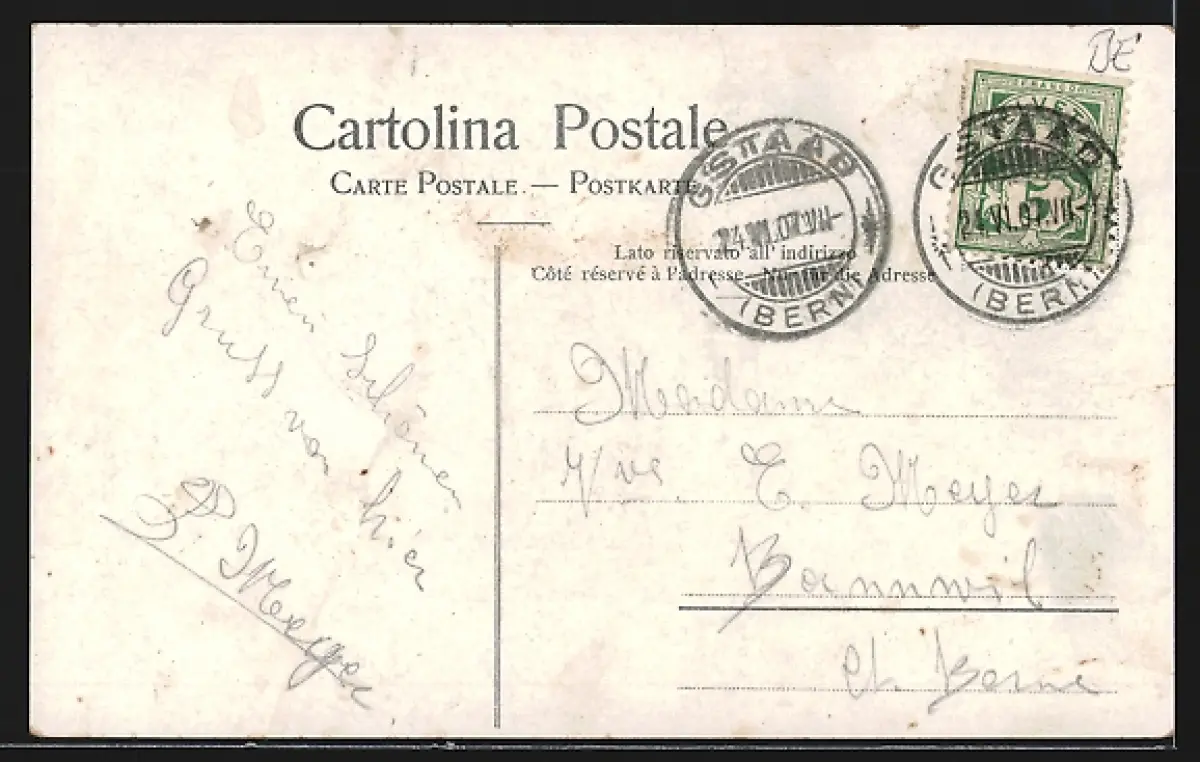 BE
Cartolina Postale
CARTE POSTALE. — POSTKARTE
FRANCO
5
GSTAAD
24.VI.07.VII-
(BERN)
GSTAAD
24.VI.07.VII-
(BERN)
Lato riservato all' indirizzo
Côté réservé à l'adresse—Nur für die Adresse
Einen Schönen
Gruss von hier
P. Meyer
Madame
Vve. E. Meyer
Bannwil
Ct. Berne